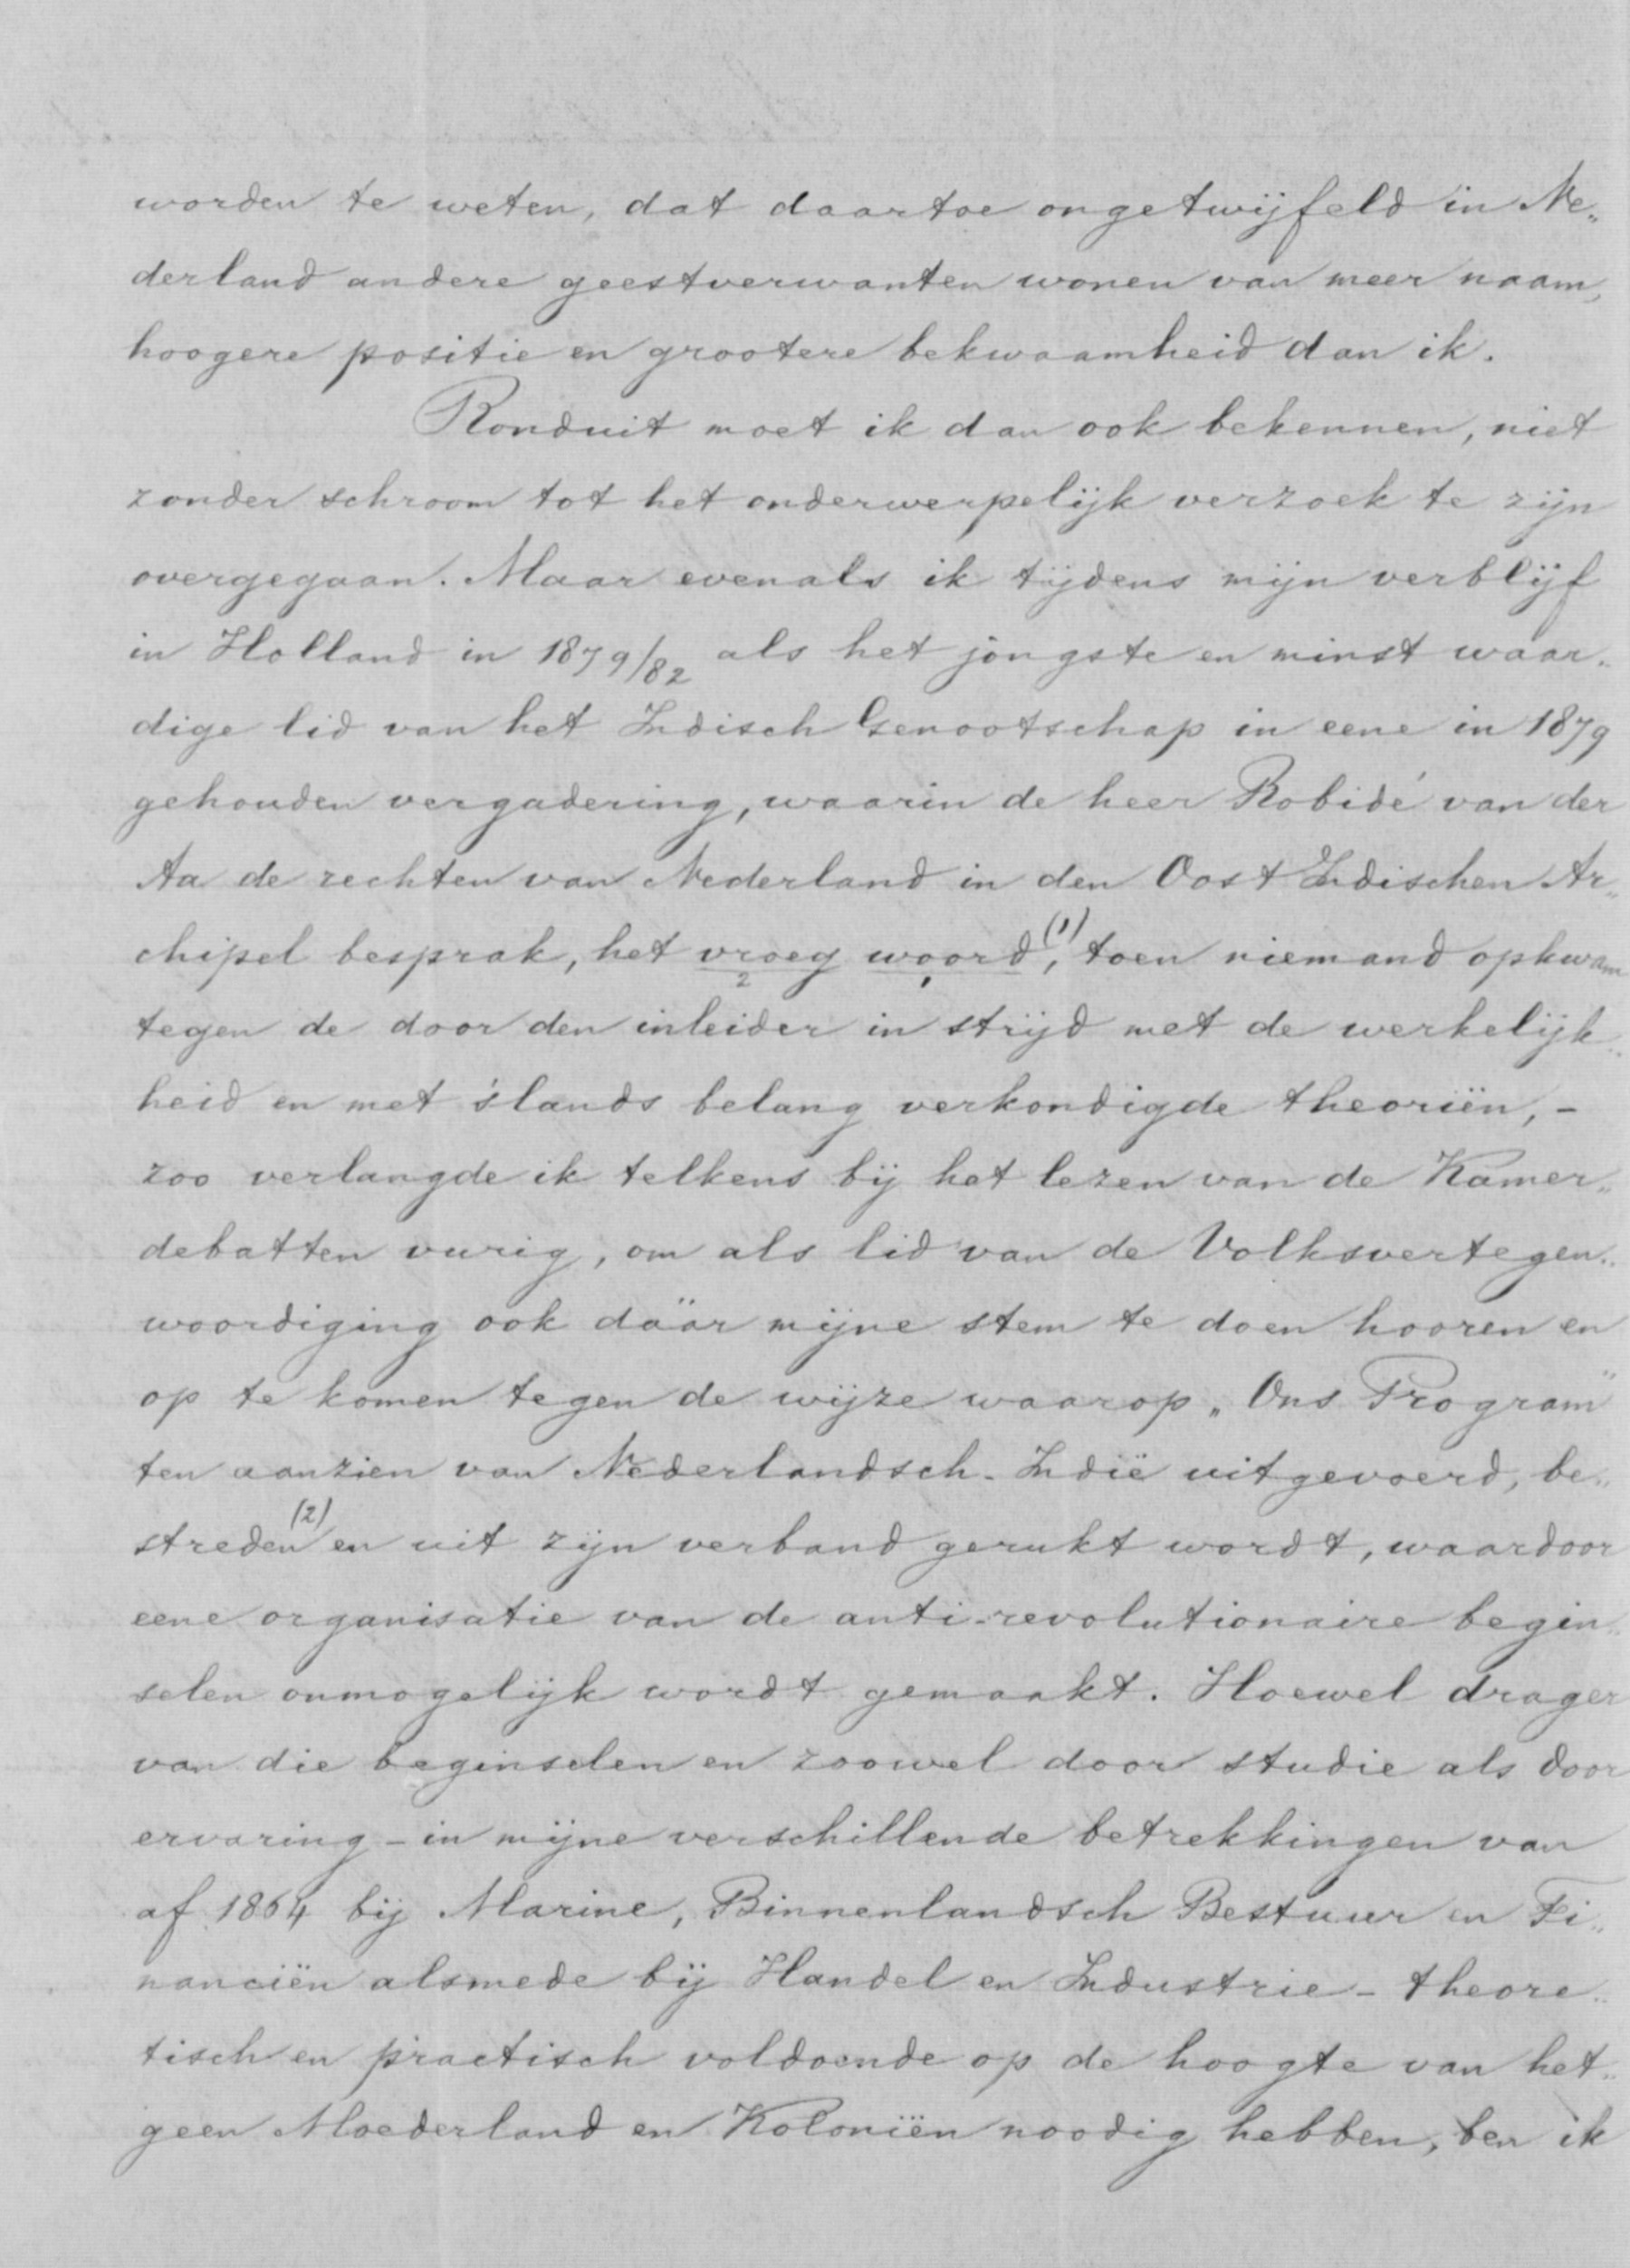 worden te weten, dat daartoe ongetwijfeld in Ne„
derland andere geestverwanten wonen van meer naam,
hoogere positie en grootere bekwaamheid dan ik.
Ronduit moet ik dan ook bekennen, niet
zonder schroom tot het onderwerpelijk verzoek te zijn
overgegaan. Maar evenals ik tijdens mijn verblijf
in Holland in 1879/82 als het jongste en minst waar„
dige lid van het Indisch Genootschap in eene in 1879
gehouden vergadering, waarin de heer Robidé van der
Aa de rechten van Nederland in den Oost Indischen Ar„
chipel besprak, het vroeg woord, (1) toen niemand opkwam
tegen de door den inleider in strijd met de werkelijk„
heid en met 's lands belang verkondigde theoriën, -
zoo verlangde ik telkens bij het lezen van de Kamer„
debatten vurig, om als lid van de Volksvertegen„
woordiging ook däär mijne stem te doen hooren en
op te komen tegen de wijze waarop „Ons Program"
ten aanzien van Nederlandsch-Indië uitgevoerd, be„
streden (2) en uit zijn verband gerukt wordt, waardoor
eene organisatie van de anti-revolutionaire begin„
selen onmogelijk wordt gemaakt. Hoewel drager
van die beginselen en zoowel door studie als door
ervaring - in mijne verschillende betrekkingen van
af 1864 bij Marine, Binnenlandsch Bestuur en Fi„
nanciën alsmede bij Handel en Industrie - theore„
tisch en practisch voldoende op de hoogte van het„
geen Moederland en Koloniën noodig hebben, ben ik